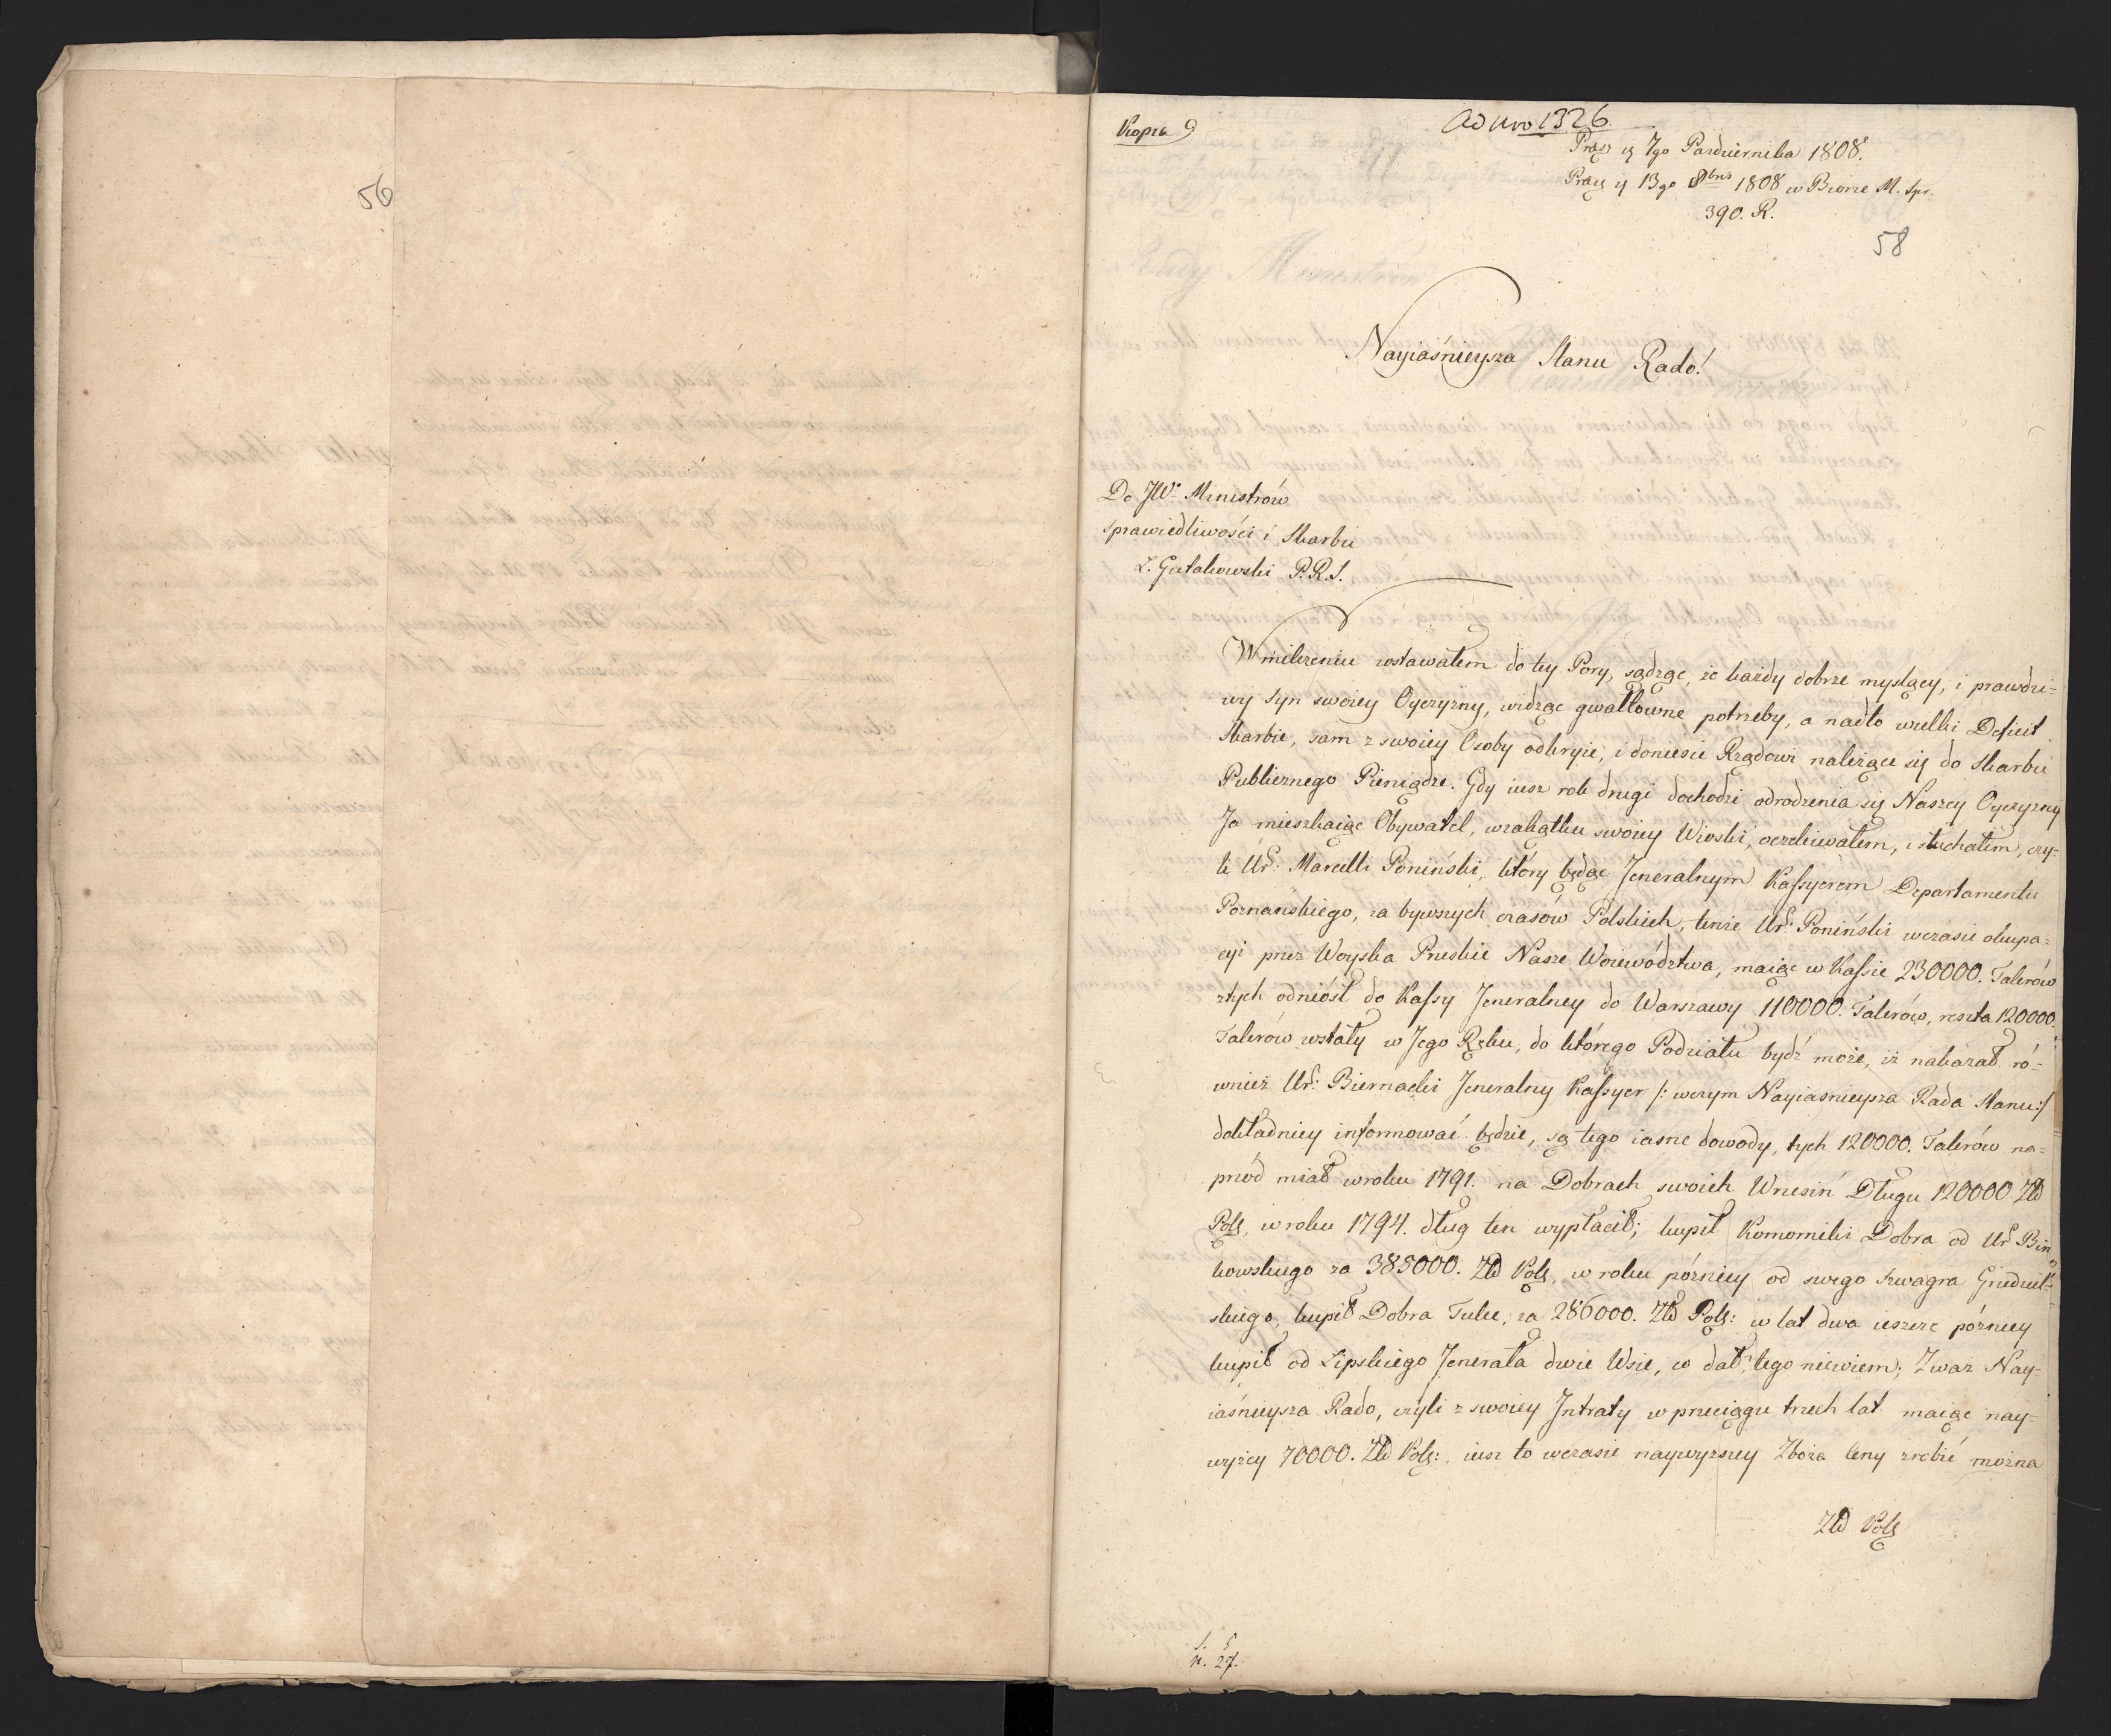 56
Kopia
Ad Nro 1326.
Praes. 7go Października 1808.
13go 8bris 1808 w Biorze M. Spr.
390. R.
58
Nayiaśnieysza Stanu Rado!
Do JW. Ministrów
Sprawiedliwości i Skarbu
L. Gutakowski P.R.S.
W milczeniu zostawałem do tey Pory, sądząc, że każdy dobrze myslący, i prawdzi=
wy Syn swoiey Oyczyzny, widząc gwałtowne potrzeby, a nadto wielki Deficit
Skarbie, sam z swoiey Osoby odkryie, i doniesie Rządowi należące się do Skarbu
Publicznego Pieniądze. Gdy iusz rok drugi dochodzi odrodzenia się Naszey Oyczyzny
Ja mieszkaiąc Obywatel, w zakątku swoiey Wioski, oczekiwałem, i słuchałem, czy=
li Ur: Marcelli Poniński, który będąc Jeneralnym Kassyerem Departamentu
Poznańskiego, za bywszych czasów Polskich, tenże Ur: Poniński w czasie okupa=
cyi przez Woyska Pruskie Nasze Woiewództwa, maiąc w Kassie 230000. Talerów
z tych odniósł do Kassy Jeneralney do Warszawy 110000. Talerów, reszta 120000.
Talerów zostały w Jego Ręku, do którego Podziału bydź może, iż nakazał ró=
wnież Ur: Biernacki Jeneralny Kassyer /: w czym Nayiasnieysza Rada Stanu :/
dokładniey informować będzie, są tego iasne dowody, tych 120000. Talerów na=
przód miał w roku 1791. na Dobrach swoich Wrzesiń Długu 120000 Złł
Pols, w roku 1794. dług ten wypłacił; kupił Komorniki Dobra od Ur Biń
kowskiego za 385000. Złł Pols, w roku pózniey od swego szwagra Grudziel=
skiego, kupił Dobra Tulce, za 286000. Złł Pols: w lat dwa ieszcze pózniey
kupił od Lipskiego Jenerała dwie Wsie, co dał, tego niewiem; Zważ Nay=
iaśnieysza Rado, czyli z swoiey Jntraty w przeciągu trzech lat maiąc nay=
wyżey 70000. Złł Pols:, iusz to w czasie naywyzszey Zboża Ceny zrobić można
Złł Pols
S. 5
N. 27.